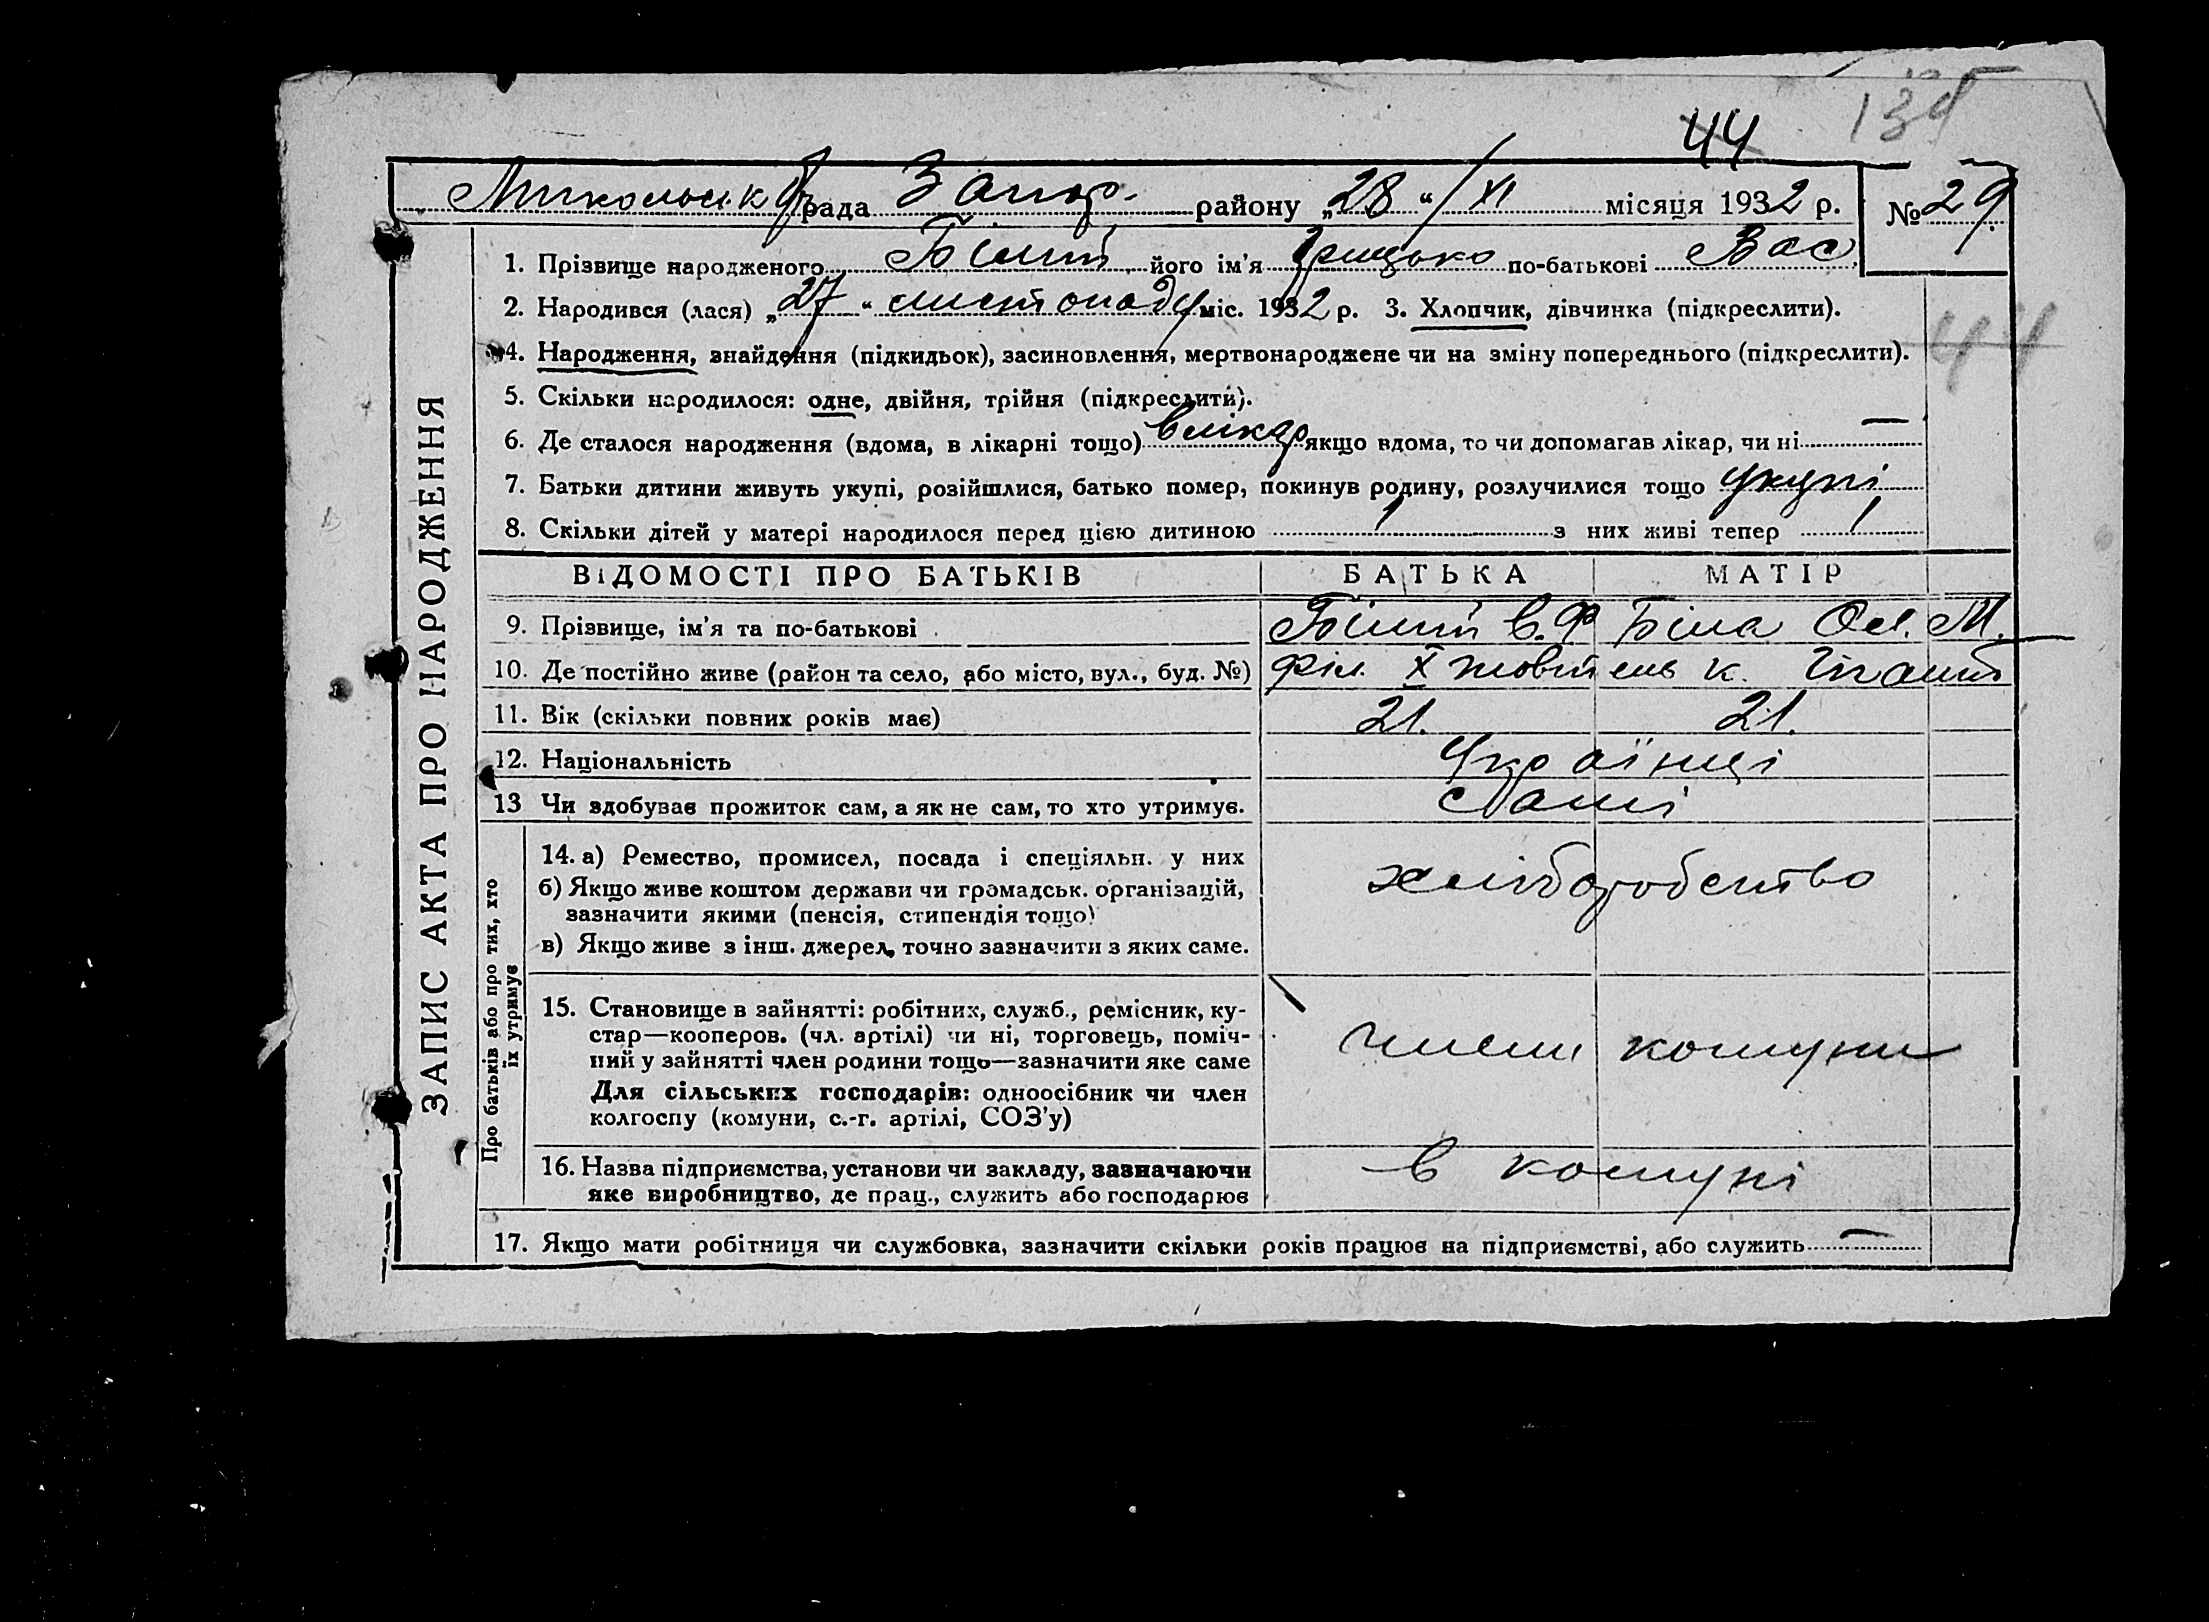 44 135
Микольськ рада Запор. району „28“ XI місяця 1932 р. № 29
1. Прізвище народженого Білий його ім'я Грицько по-батькові Вас
2. Народився (лася) „27“ листопаду міс. 1932 р. 3. Хлопчик, дівчинка (підкреслити).
44
4. Народження, знайдення (підкидьок), засиновлення, мертвонароджене чи на зміну попереднього (підкреслити).
5. Скільки народилося: одне, двійня, трійня (підкреслити).
6. Де сталося народження (вдома, в лікарні тощо) в лікар якщо вдома, то чи допомагав лікар, чи ні —
7. Батьки дитини живуть укупі, розійшлися, батько помер, покинув родину, розлучилися тощо укупі
8. Скільки дітей у матері народилося перед цією дитиною 1 з них живі тепер 1
ВІДОМОСТІ ПРО БАТЬКІВ БАТЬКА МАТІР
9. Прізвище, ім'я та по-батькові Білий В. Ф Біла Ол. М.
10. Де постійно живе (район та село, або місто, вул., буд. №) Філ. X Жовтень к. Гігант
11. Вік (скільки повних років має) 21. 21.
12. Національність Українці
13 Чи здобуває прожиток сам, а як не сам, то хто утримує. Самі
14. а) Ремество, промисел, посада і спеціяльн. у них
хліборобство
б) Якщо живе коштом держави чи громадськ. організацій,
зазначити якими (пенсія, стипендія тощо)
в) Якщо живе з інш. джерел, точно зазначити з яких саме.
15. Становище в зайнятті: робітник, служб., ремісник, ку-
стар—кооперов. (чл. артілі) чи ні, торговець, поміч-
ний у зайнятті член родини тощо—зазначити яке саме
члени комуни
Для сільських господарів: одноосібник чи член
колгоспу (комуни, с.-г. артілі, СОЗ'у)
16. Назва підприємства, установи чи закладу, зазначаючи
яке виробництво, де прац., служить або господарює
в комуні
17. Якщо мати робітниця чи службовка, зазначити скільки років працює на підприємстві, або служить —
ЗАПИС АКТА ПРО НАРОДЖЕННЯ
Про батьків або про тих, хто
їх утримує